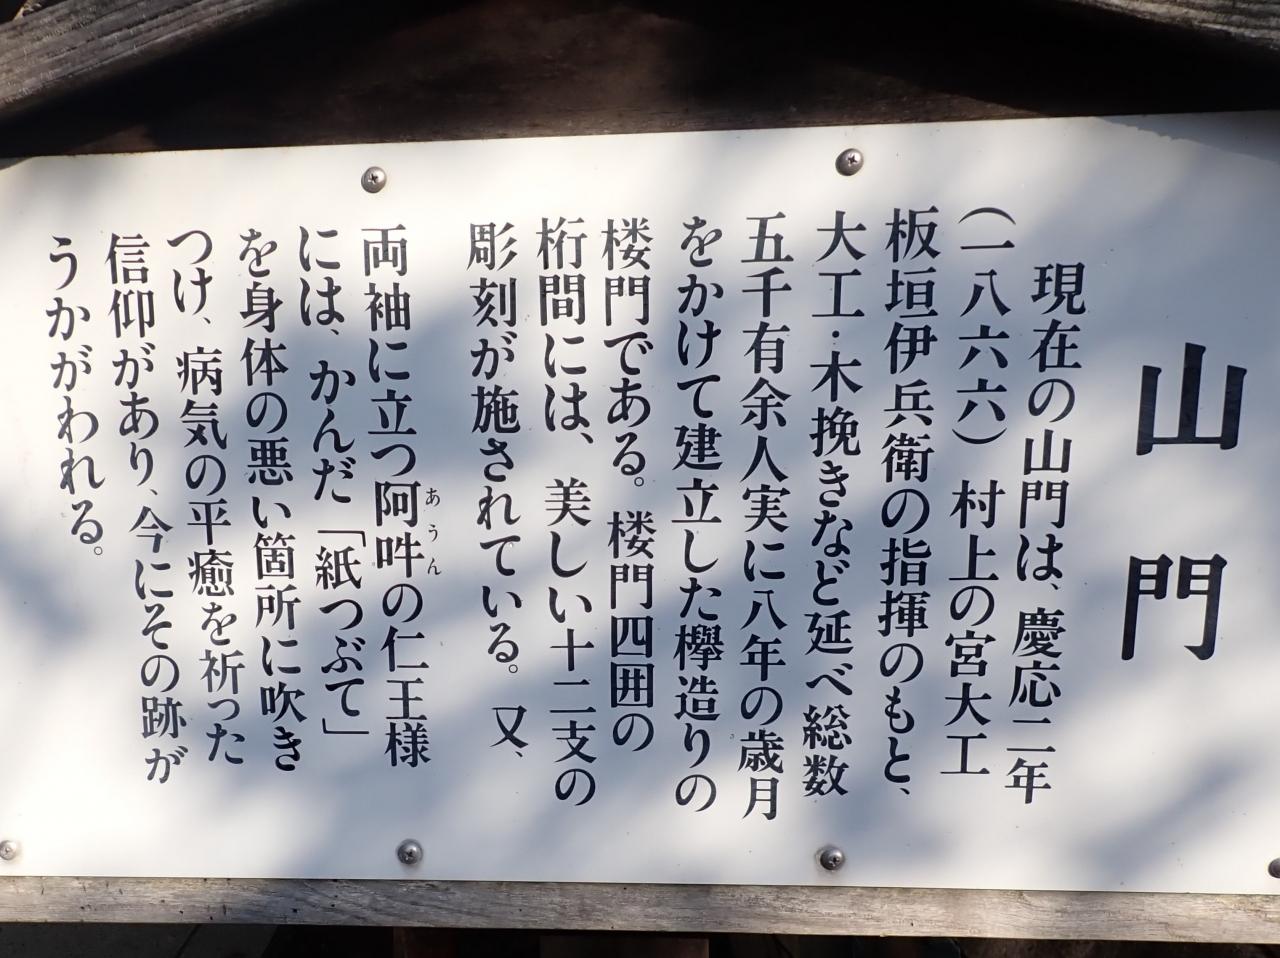 山門
現在の山門は、慶応二年
（一八六六）村上の宮大工
板垣伊兵衛の指揮のもと、
大工・木挽きなど延べ総数
五千有余人実に八年の歳月
をかけて建立した欅造りの
楼門である。楼門四囲の
桁間には、美しい十二支の
彫刻が施されている。又、
両袖に立つ阿吽の仁王様
あうん
には、かんだ「紙つぶて」
を身体の悪い箇所に吹き
つけ、病気の平癒を祈った
信仰があり、今にその跡が
うかがわれる。